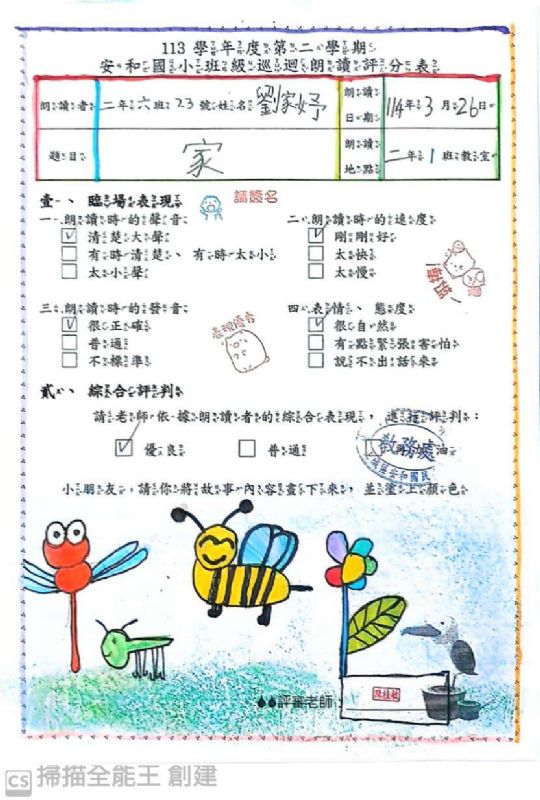 113 學年度第二學期
安和國小班級巡迴朗讀評分表
朗讀者 二年六班 23 號姓名 劉家妤 朗讀日期 114年3月26日
題目 家 朗讀地點 二年1班教室
壹、臨場表現 請簽名
一、朗讀時的聲音
清楚大聲
有時清楚、有時太小
太小聲
二、朗讀時的速度
剛剛好
太快
太慢
三、朗讀時的發音
很正確
普通
不標準
表現優秀
四、表情、態度
很自然
有點緊張害怕
說不出話來
貳、綜合評判
請老師依據朗讀者的綜合表現,進行評判:
優良 普通 再加油
教務處
小朋友,請你將故事內容畫下來,並塗上顏色
評審老師:
CS 掃描全能王 創建